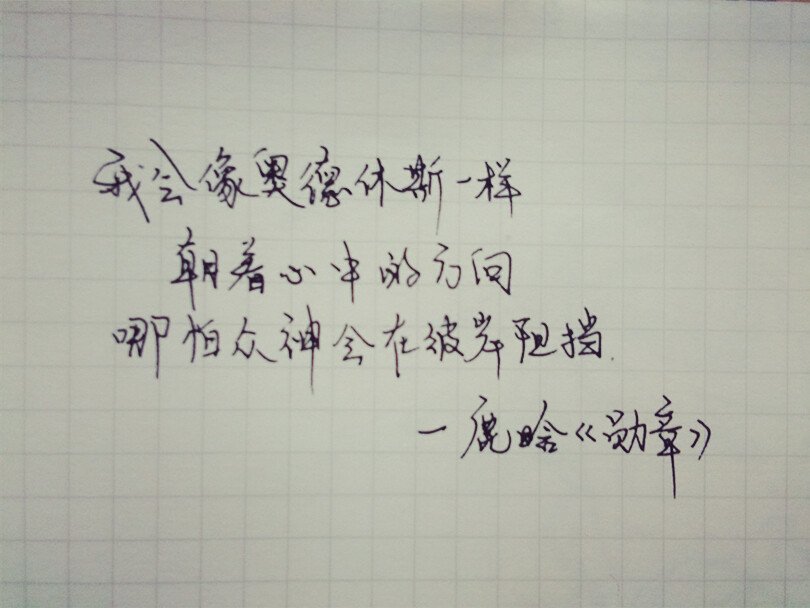 我会像奥德休斯一样
朝着心中的方向
哪怕众神会在彼岸阻挡
一鹿晗《勋章》